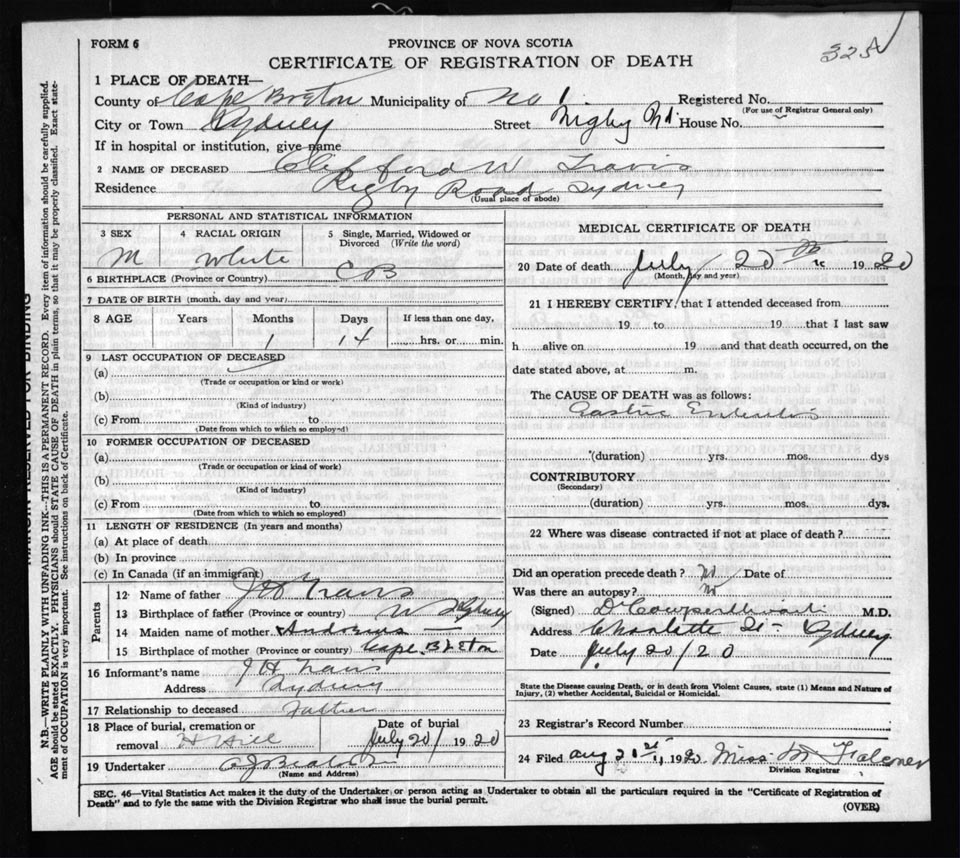 FORM 6
PROVINCE OF NOVA SCOTIA
CERTIFICATE OF REGISTRATION OF DEATH
325
1 PLACE OF DEATH—
County of Cape Breton Municipality of No 1 Registered No.
(For use of Registrar General only)
City or Town Sydney Street Rigby Rd. House No.
If in hospital or institution, give name
2 NAME OF DECEASED Clifford W Travis
Residence Rigby Road Sydney
(Usual place of abode)
PERSONAL AND STATISTICAL INFORMATION
3 SEX
M
4 RACIAL ORIGIN
White
5 Single, Married, Widowed or Divorced (Write the word)
6 BIRTHPLACE (Province or Country) C B
7 DATE OF BIRTH (month, day and year)
8 AGE Years Months Days If less than one day,
1 14 hrs. or min.
9 LAST OCCUPATION OF DECEASED
(a)
(Trade or occupation or kind or work)
(b)
(Kind of industry)
(c) From to
(Date from which to which so employed)
10 FORMER OCCUPATION OF DECEASED
(a)
(Trade or occupation or kind of work)
(b)
(Kind of industry)
(c) From to
(Date from which to which so employed)
11 LENGTH OF RESIDENCE (In years and months)
(a) At place of death
(b) In province
(c) In Canada (if an immigrant)
Parents
12 Name of father J H Travis
13 Birthplace of father (Province or country) N Sydney
14 Maiden name of mother Andrews
15 Birthplace of mother (Province or country) Cape Breton
16 Informant's name J H Travis
Address Sydney
17 Relationship to deceased Father
18 Place of burial, cremation or removal H Hill
Date of burial
July 20/ 1920
19 Undertaker
(Name and Address)
MEDICAL CERTIFICATE OF DEATH
20 Date of death July 20 1920
(Month, day and year)
21 I HEREBY CERTIFY, that I attended deceased from
19 to 19 that I last saw
h alive on 19 and that death occurred, on the
date stated above, at m.
The CAUSE OF DEATH was as follows:
Gastric Enteritis
(duration) yrs. mos. dys
CONTRIBUTORY
(Secondary)
(duration) yrs. mos. dys.
22 Where was disease contracted if not at place of death?
Did an operation precede death? No Date of
Was there an autopsy? No
(Signed) M.D.
Address Charlotte St - Sydney
Date July 20/20
State the Disease causing Death, or in death from Violent Causes, state (1) Means and Nature of
Injury, (2) whether Accidental, Suicidal or Homicidal.
23 Registrar's Record Number
24 Filed Aug 21st 1920 Miss M Falconer
Division Registrar
SEC. 46—Vital Statistics Act makes it the duty of the Undertaker or person acting as Undertaker to obtain all the particulars required in the "Certificate of Registration of
Death" and to fyle the same with the Division Registrar who shall issue the burial permit. (OVER)
MARGIN RESERVED FOR BINDING
N.B.—WRITE PLAINLY WITH UNFADING INK—THIS IS A PERMANENT RECORD. Every item of information should be carefully supplied.
AGE should be stated EXACTLY. PHYSICIANS should STATE CAUSE OF DEATH in plain terms, so that it may be properly classified. Exact state-
ment of OCCUPATION is very important. See instructions on back of Certificate.